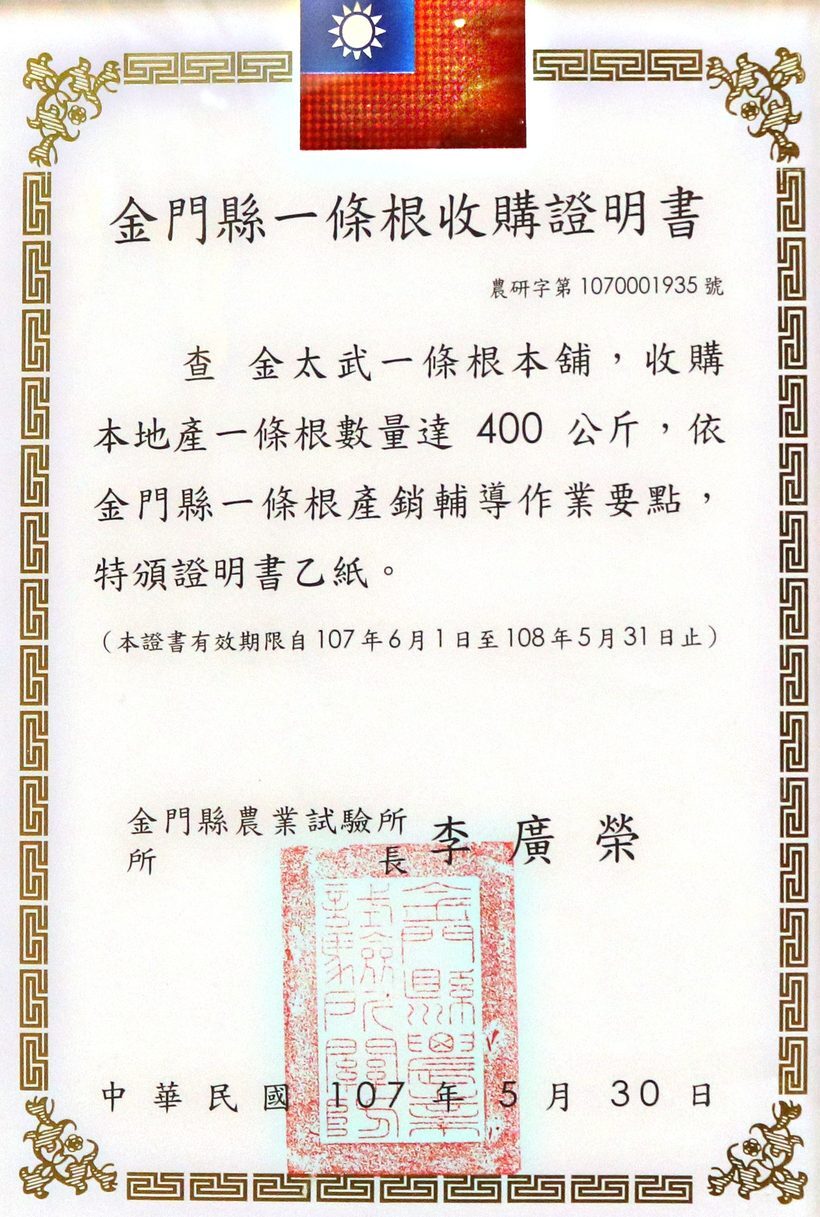 金門縣一條根收購證明書
農研字第1070001935號
查 金太武一條根本舖，收購
本地產一條根數量達 400 公斤，依
金門縣一條根產銷輔導作業要點，
特頒證明書乙紙。
（本證書有效期限自107年6月1日至108年5月31日止）
金門縣農業試驗所
所 長 李 廣 榮
中 華 民 國 107 年 5 月 30 日